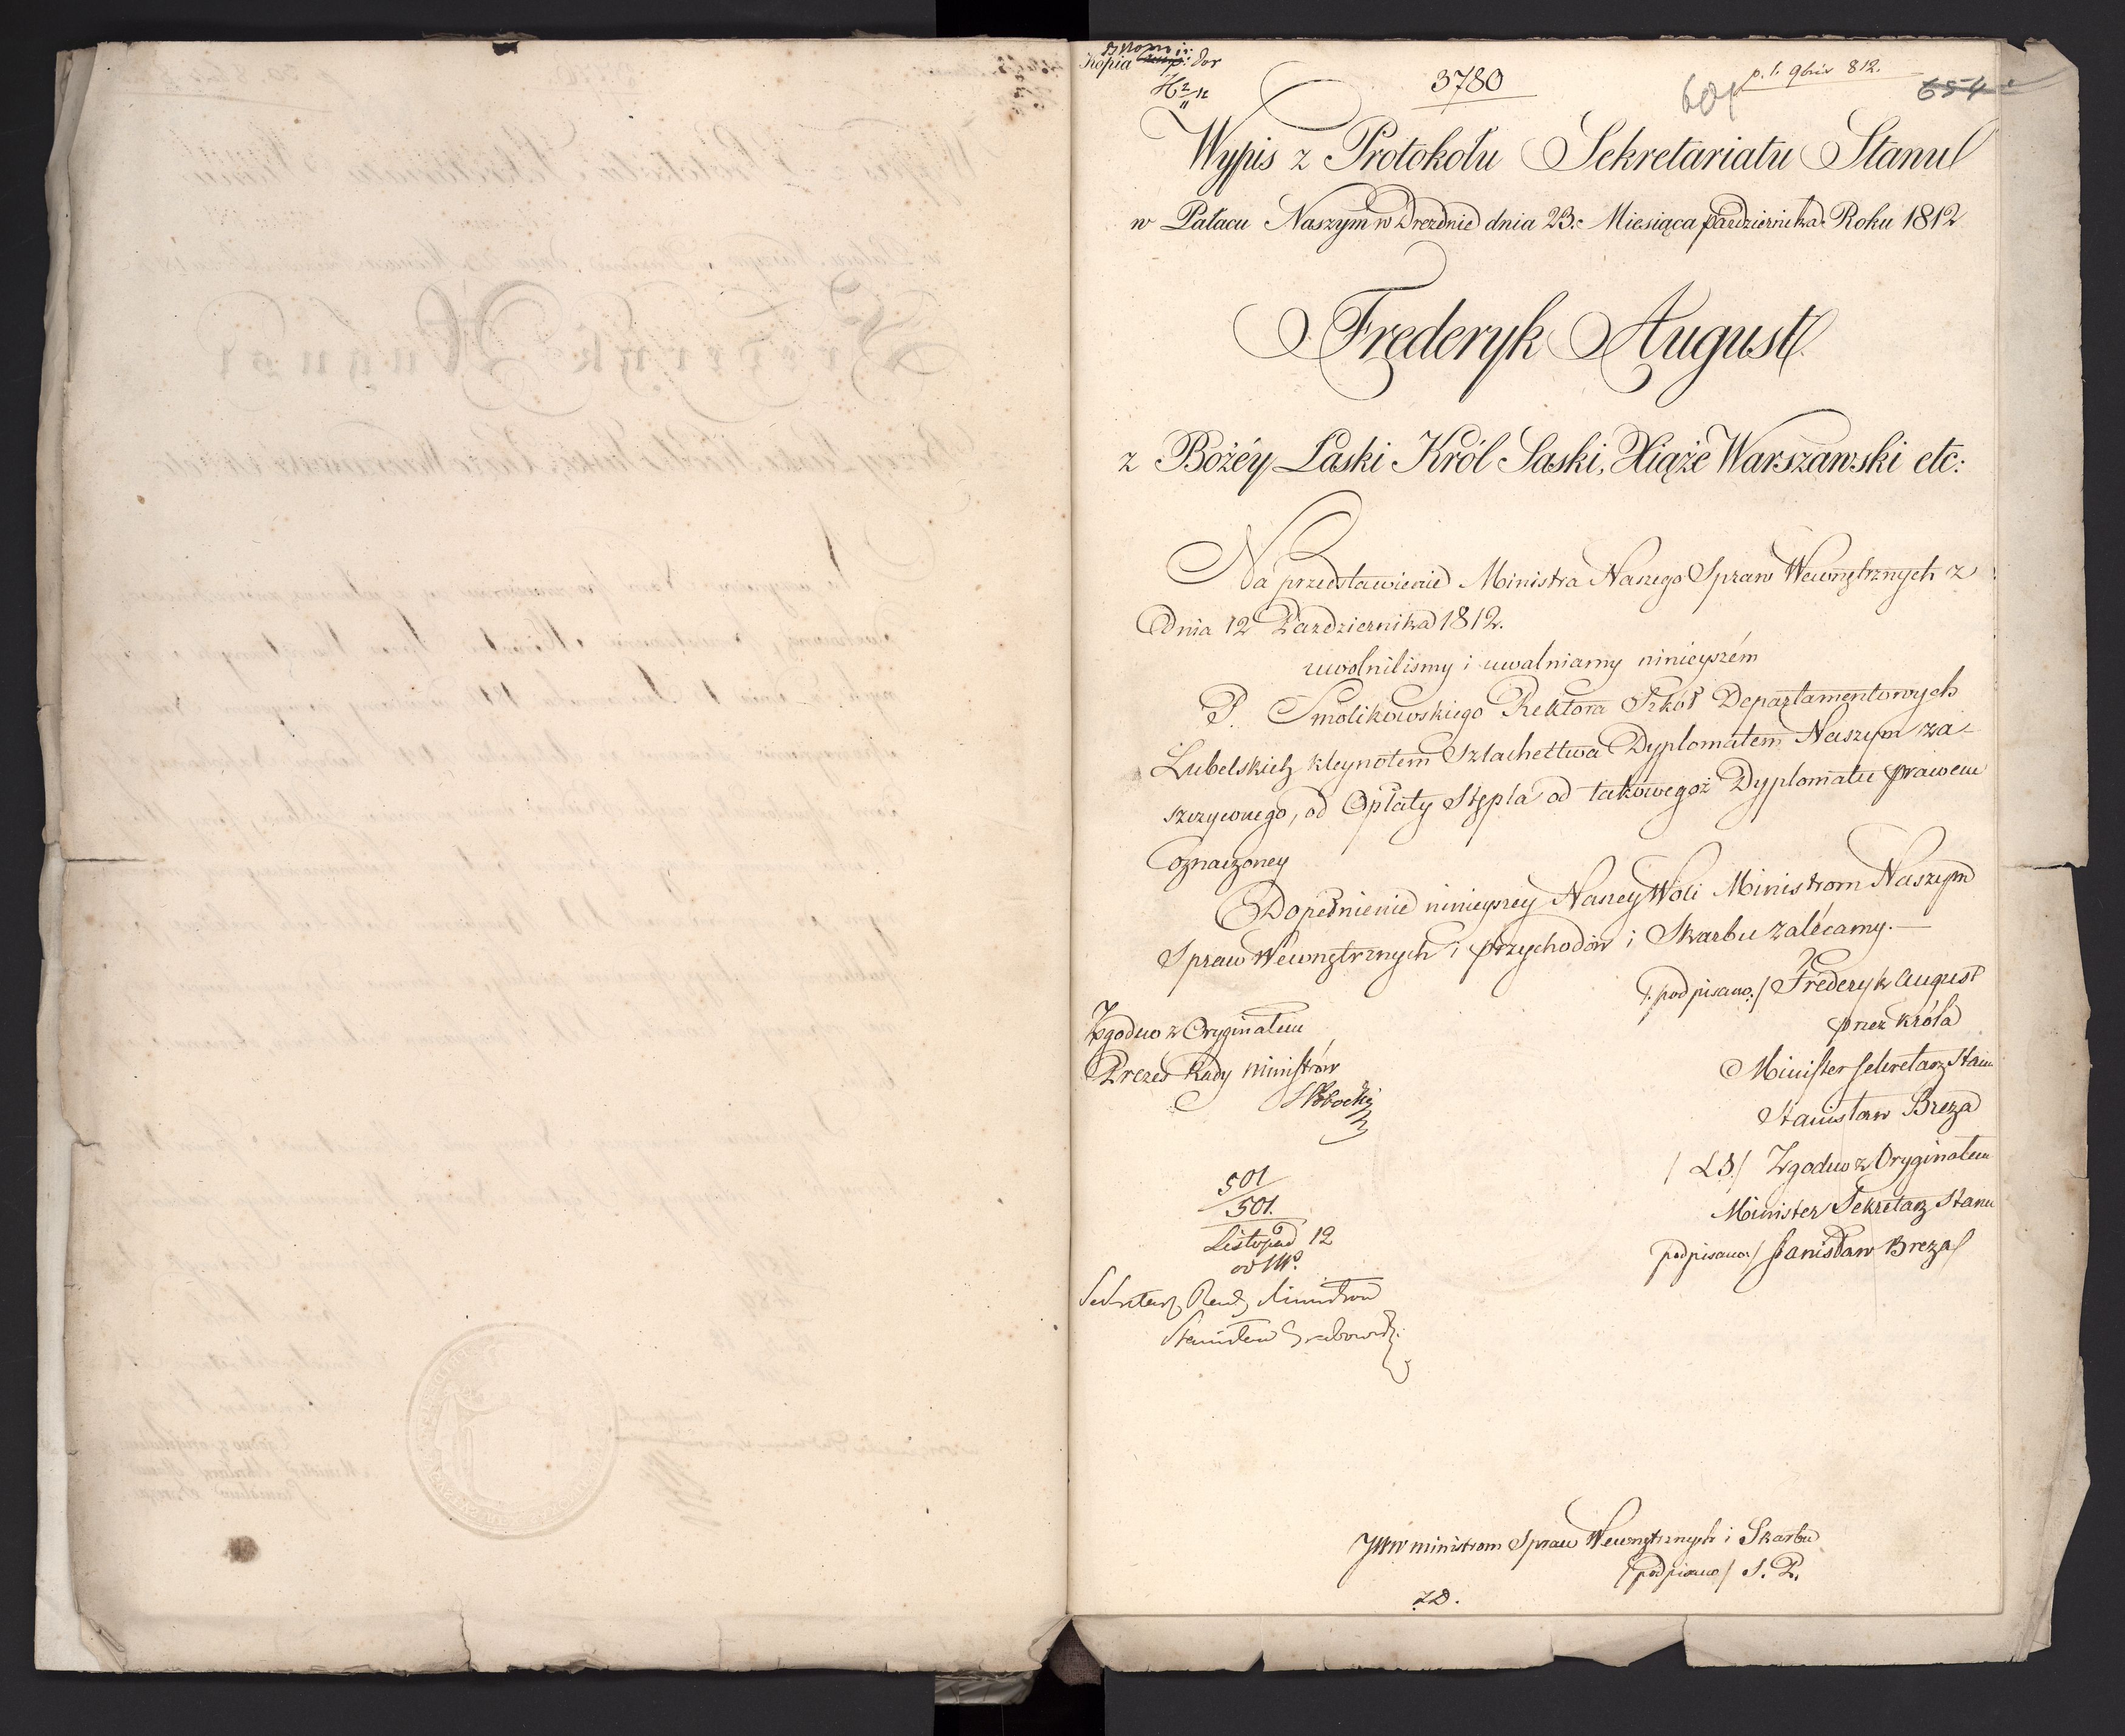 Kopia
3780
p. 1. 9bris 812.
601
654
Wypis z Protokołu Sekretariatu Stanu
w Pałacu Naszym w Dreznie dnia 23. Miesiąca pazdziernika Roku 1812
Frederyk August
z Bożéy Łaski Król Saski, Xiąże Warszawski etc:
Na przedstawienie Ministra Naszego Spraw Wewnętrznych z
dnia 12 Pazdziernika 1812.
uwolnilismy i uwalniamy ninieyszém
P. Smolikowskiego Rektora Szkół Departamentowych
Lubelskich kleynotem Szlachectwa Dyplomatem Naszym za-
szczyconego, od Opłaty Stępla od takowegoż Dyplomatu prawem
oznaczoney
Dopełnienie ninieyszey Naszey Woli Ministrom Naszym
Spraw Wewnętrznych i przychodów i Skarbu zalécamy.—
/:podpisano:/ Frederyk August
przez Króla
Minister Sekretarz Stanu
Stanisław Breza
/LS/ Zgodno z Oryginałem
Minister Sekretarz Stanu
podpisano:/ Stanisław Breza/
Zgodno z Oryginałem
Prezes Rady Ministrów
501
501.
Listopad 12
Sekretarz Rady Ministrów
Stanisław Grabowski
JWW ministrom Spraw Wewnętrznych i Skarbu
/podpisano/ S. P.